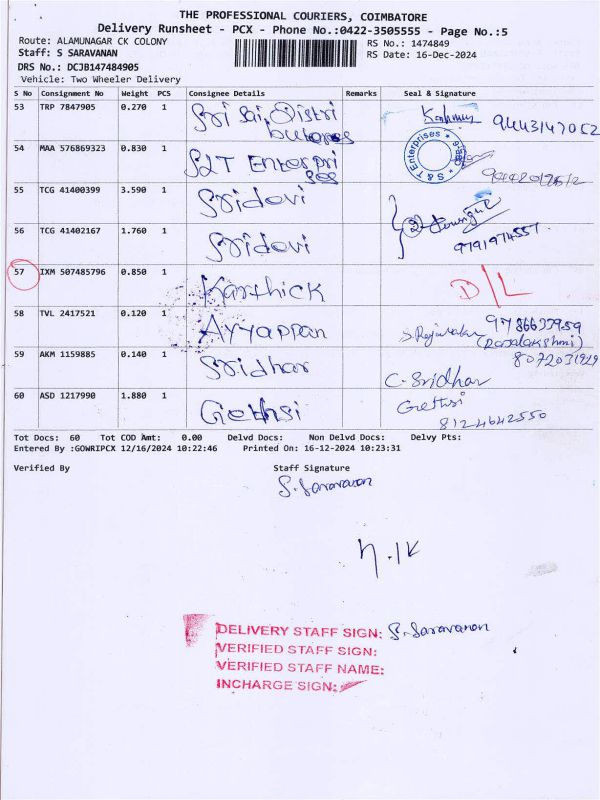 THE PROFESSIONAL COURIERS, COIMBATORE
Delivery Runsheet - PCX - Phone No.:0422-3505555 - Page No.:5
Route: ALAMUNAGAR CK COLONY RS No.: 1474849
Staff: S SARAVANAN RS Date: 16-Dec-2024
DRS No.: DCJB147484905
Vehicle: Two Wheeler Delivery
S No Consignment No Weight PCS Consignee Details Remarks Seal & Signature
53 TRP 7847905 0.270 1 Sri Sai Distri
butores
54 MAA 576869323 0.830 1 S&T Enterpri
ses S & T Enterprises
55 TCG 41400399 3.590 1 Sridevi
56 TCG 41402167 1.760 1 Sridevi 9791974557
57 IXM 507485796 0.850 1 Karthick D/L
58 TVL 2417521 0.120 1 Ayyappan (Rajalakshmi)
59 AKM 1159885 0.140 1 Sridhar C. Sridhar
60 ASD 1217990 1.880 1 Gethsi Grethsi
8124642550
Tot Docs: 60 Tot COD Amt: 0.00 Delvd Docs: Non Delvd Docs: Delvy Pts:
Entered By :GOWRIPCX 12/16/2024 10:22:46 Printed On: 16-12-2024 10:23:31
Verified By Staff Signature
S. Saravanan
DELIVERY STAFF SIGN: S. Saravanan
VERIFIED STAFF SIGN:
VERIFIED STAFF NAME:
INCHARGE SIGN: